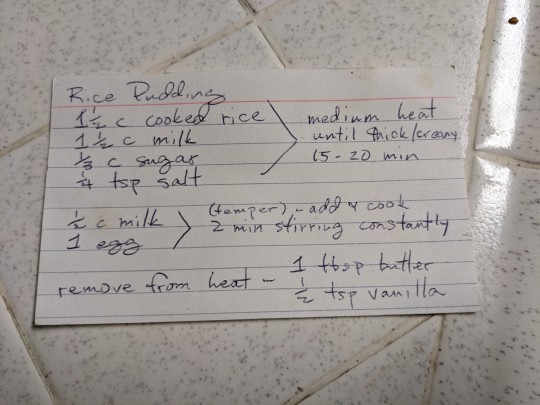 Rice Pudding
1 1/2 c cooked rice
1 1/2 c milk
1/3 c sugar
1/4 tsp salt
medium heat
until thick/creamy
15-20 min
1/2 c milk
1 egg
(temper) - add & cook
2 min stirring constantly
remove from heat - 1 tbsp butter
1/2 tsp vanilla